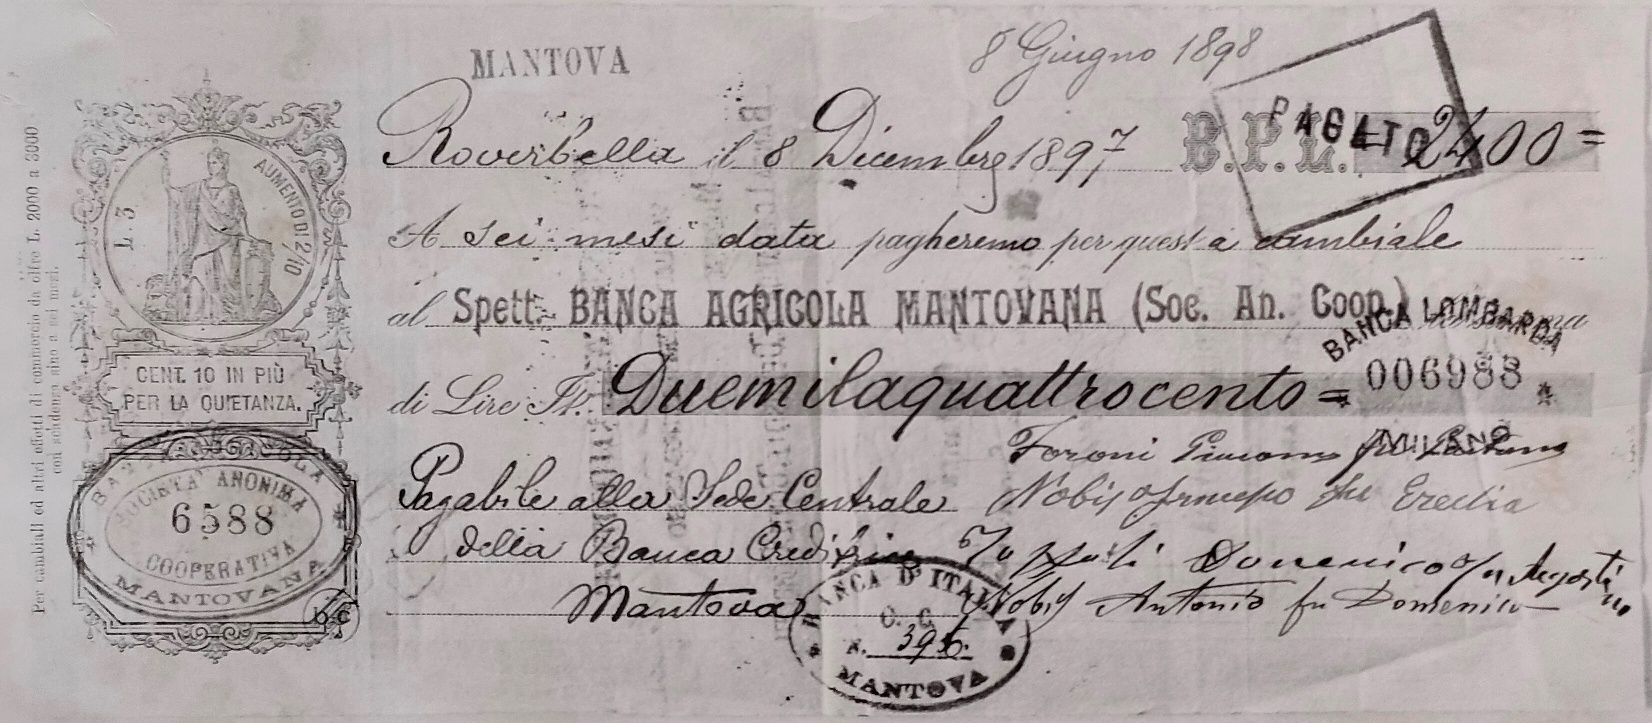 Per cambiali ed altri effetti di commercio da oltre L. 2000 a 3000
con scadenza sino a sei mesi.
L. 3
AUMENTO DI 2/10
CENT. 10 IN PIÙ
PER LA QUIETANZA.
SOCIETA' ANONIMA
6588
COOPERATIVA
MANTOVANA
MANTOVA
8 Giugno 1898
Roverbella il 8 Dicembre 1897 B.P.L. 2400 =
PAGATO
A sei mesi data pagheremo per questa cambiale
al Spett. BANCA AGRICOLA MANTOVANA (Soc. An. Coop.)
BANCA LOMBARDA
006988
MILANO
di Lire It. Duemilaquattrocento =
Pagabile alla Sede Centrale
della Banca
Mantova
Foroni Giacomo fu
Domenico
Antonio fu Domenico
BANCA D'ITALIA
N. 395.
MANTOVA